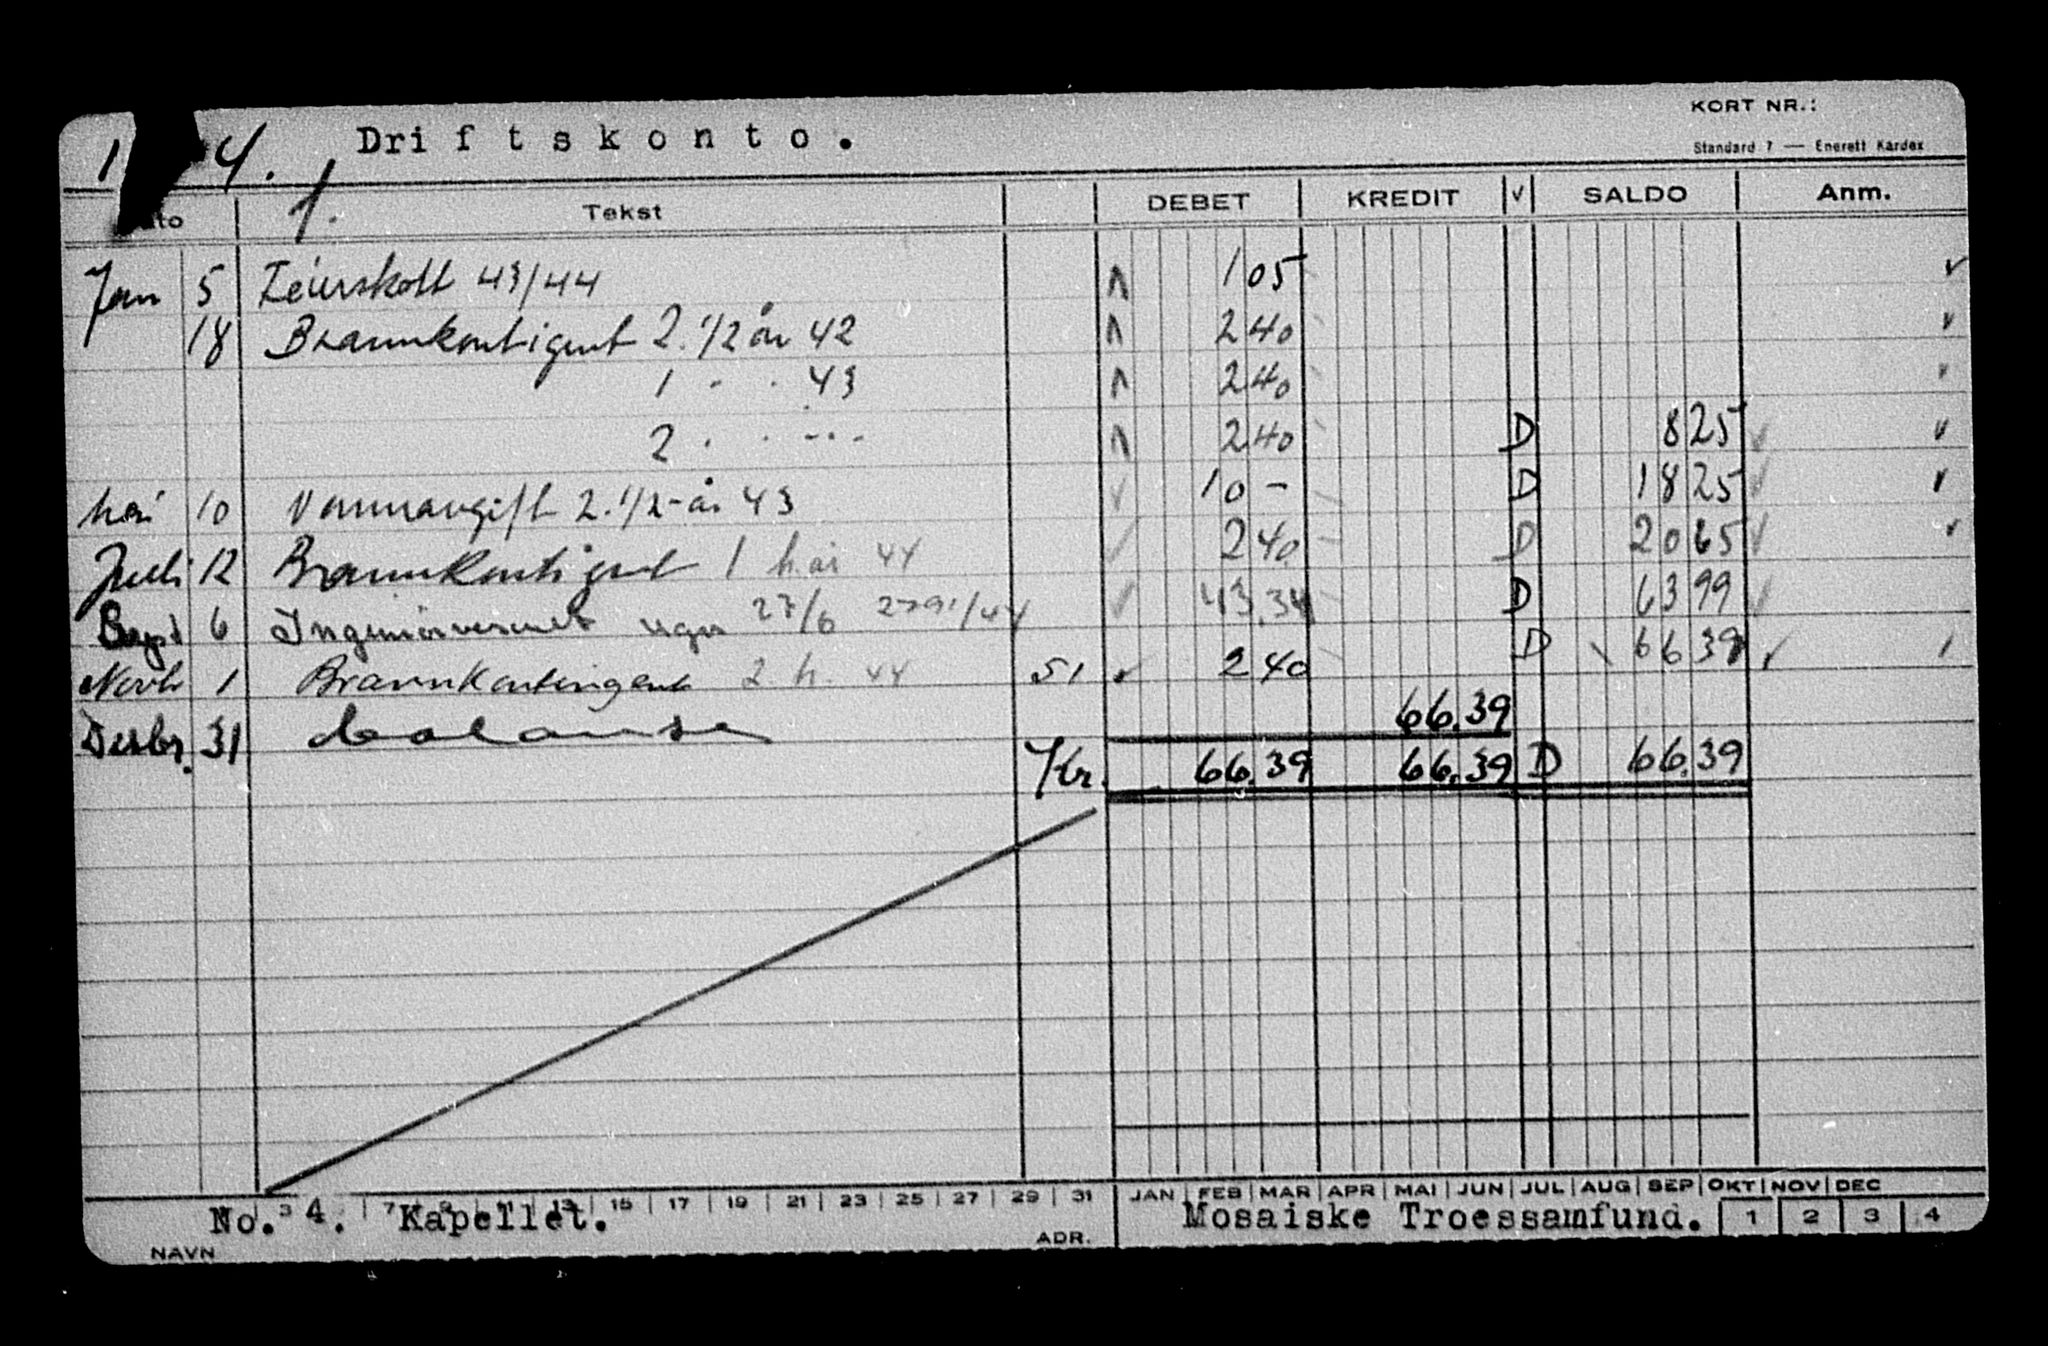 1 4. Driftskonto. KORT NR.:
Standard 7 — Enerett Kardex
1.
Tekst DEBET KREDIT V SALDO Anm.
Jan 5 Feierskatt 43/44 1 05
18 Brannkontigent 2. 1/2 år 42 2 40
1 " " 43 2 40
2 " " " 2 40 D 8 25
Mai 10 Vannavgift 2. 1/2-år 43 10 - D 18 25
Juli 12 Brannkontigent 1 h år 44 2 40 D 20 65
Sept 6 Ingeniørvesenet regn 27/6 43.34 D 63 99
Novbr 1 Brannkontingent 2. h. 44 51 2 40 D 66 39
Desbr. 31 balanse 66.39
Kr. 66.39 66.39 D 66.39
3 7 9 11 13 15 17 19 21 23 25 27 29 31 JAN FEB MAR APR MAI JUN JUL AUG SEP OKT NOV DEC
No. 4. Kapellet. Mosaiske Troessamfund. 1 2 3 4
NAVN ADR.